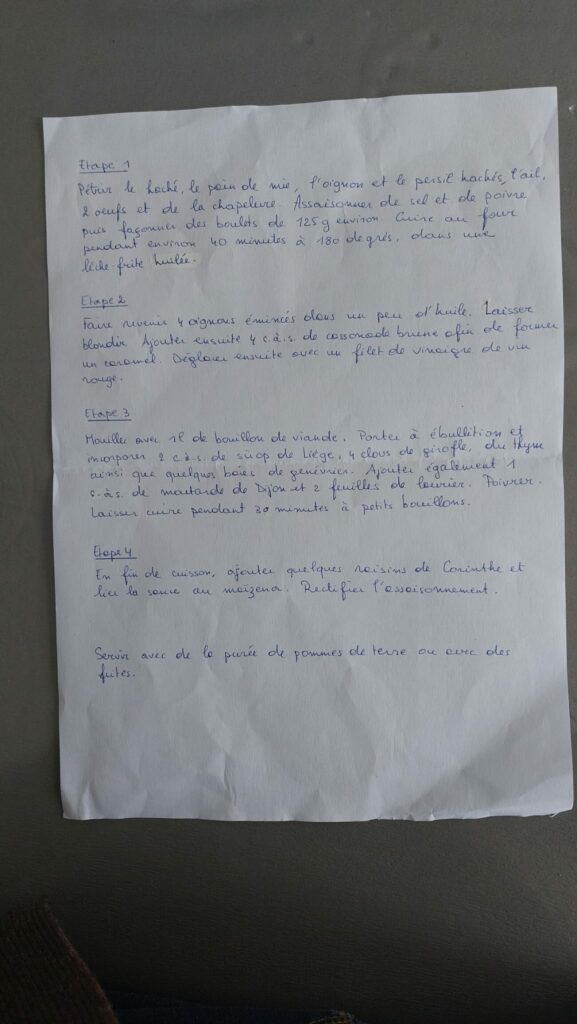 Etape 1
Pétrir le haché, le pain de mie, l'oignon et le persil hachés, l'ail,
2 oeufs et de la chapelure. Assaisonner de sel et de poivre
puis façonner des boulets de 125 g environ. Cuire au four
pendant environ 40 minutes à 180 degrés, dans une
lèche-frite huilée.
Etape 2
Faire revenir 4 oignons émincés dans un peu d'huile. Laisser
blondir. Ajouter ensuite 4 c.à.s. de cassonade brune afin de former
un caramel. Déglacer ensuite avec un filet de vinaigre de vin
rouge.
Etape 3
Mouiller avec 1l de bouillon de viande. Porter à ébullition et
incorporer 2 c.à.s. de sirop de Liège, 4 clous de girofle, du thym
ainsi que quelques baies de genévrier. Ajouter également 1
c.à.s. de moutarde de Dijon et 2 feuilles de laurier. Poivrer.
Laisser cuire pendant 30 minutes à petits bouillons.
Etape 4
En fin de cuisson, ajouter quelques raisins de Corinthe et
lier la sauce au maizena. Rectifier l'assaisonnement.
Servir avec de la purée de pommes de terre ou avec des
frites.